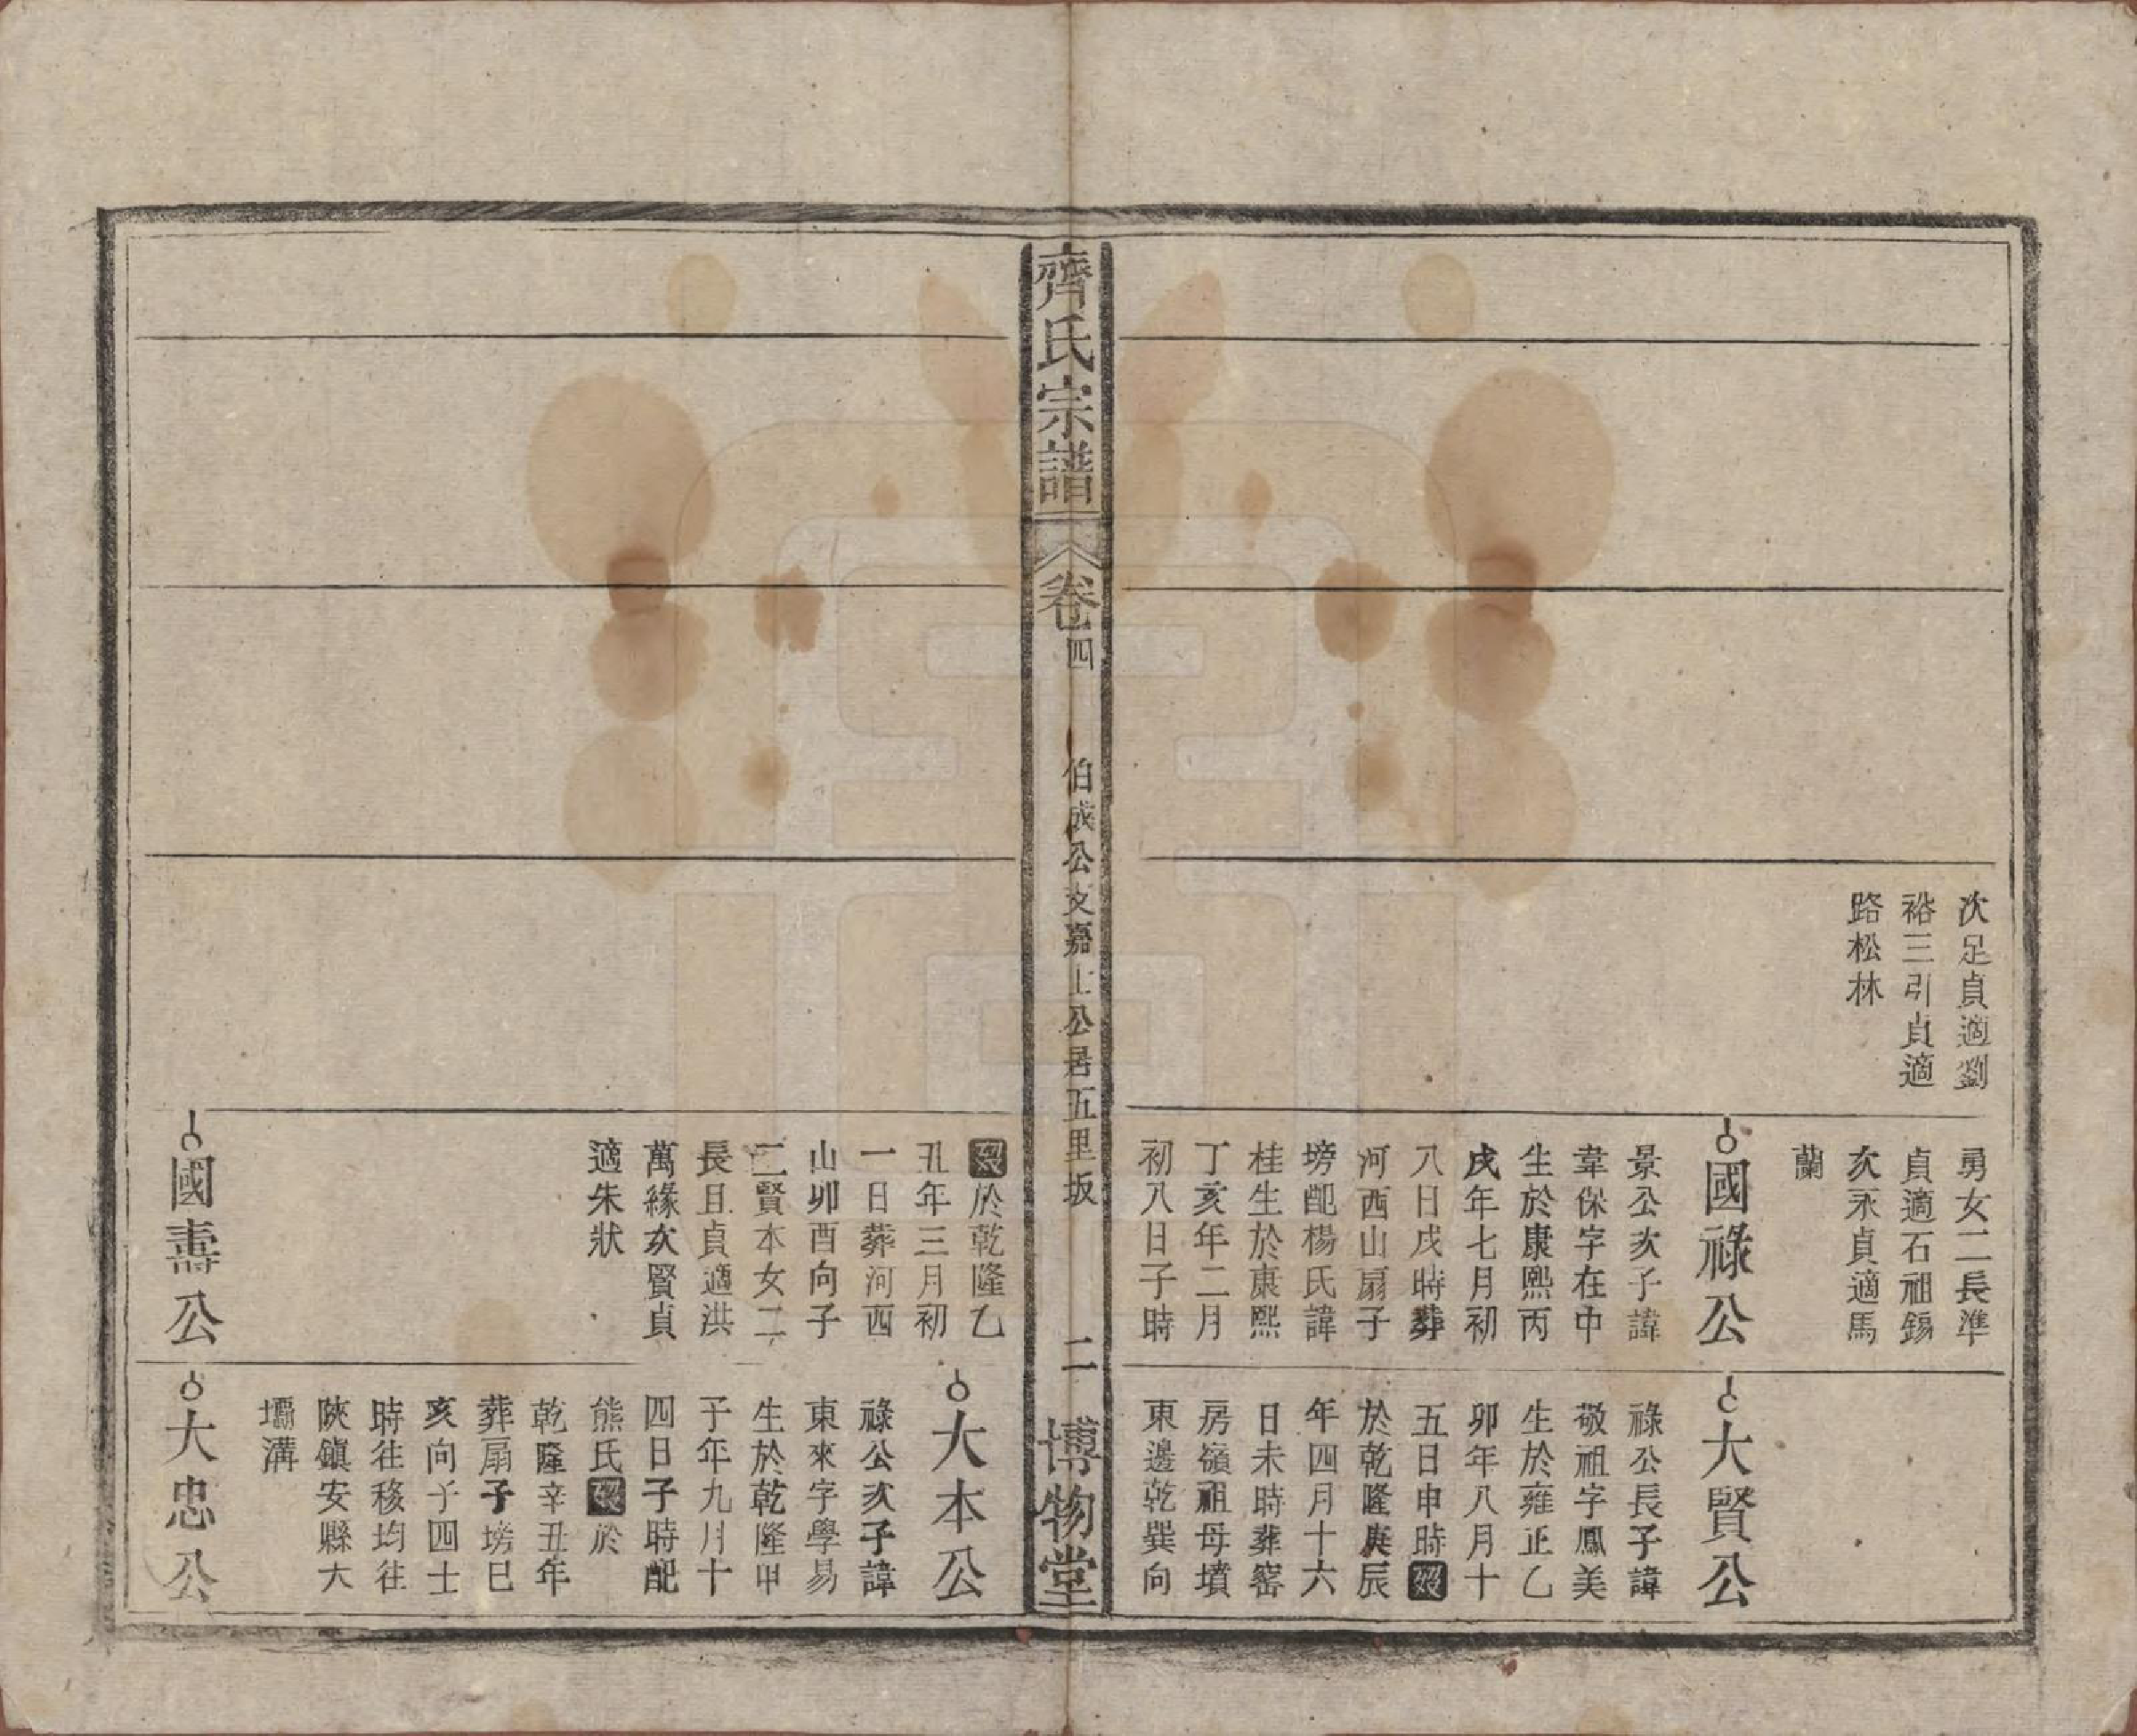 次足貞適劉
裕三引貞適
路松林
勇女二長準
貞適石祖錫
次永貞適馬
蘭
國祿公
景公次子諱
韋保字在中
生於康熙丙
戌年七月初
八日戌時葬
河西山扇子
塝配楊氏諱
桂生於康熙
丁亥年二月
初八日子時
大賢公
祿公長子諱
敬祖字鳳美
生於雍正乙
卯年八月十
五日申時歿
於乾隆庚辰
年四月十六
日未時葬窰
房嶺祖母墳
東邊乾巽向
齊氏宗譜
卷四
伯成公支嘉上公居五里坂
二
博物堂
歿於乾隆乙
丑年三月初
一日葬河西
山卯酉向子
二賢本女二
長且貞適洪
萬緣次賢貞
適朱狀
國壽公
大本公
祿公次子諱
東來字學易
生於乾隆甲
子年九月十
四日子時配
熊氏歿於
乾隆辛丑年
葬扇子塝巳
亥向子四士
時往移均往
陝鎮安縣大
壩溝
大忠公